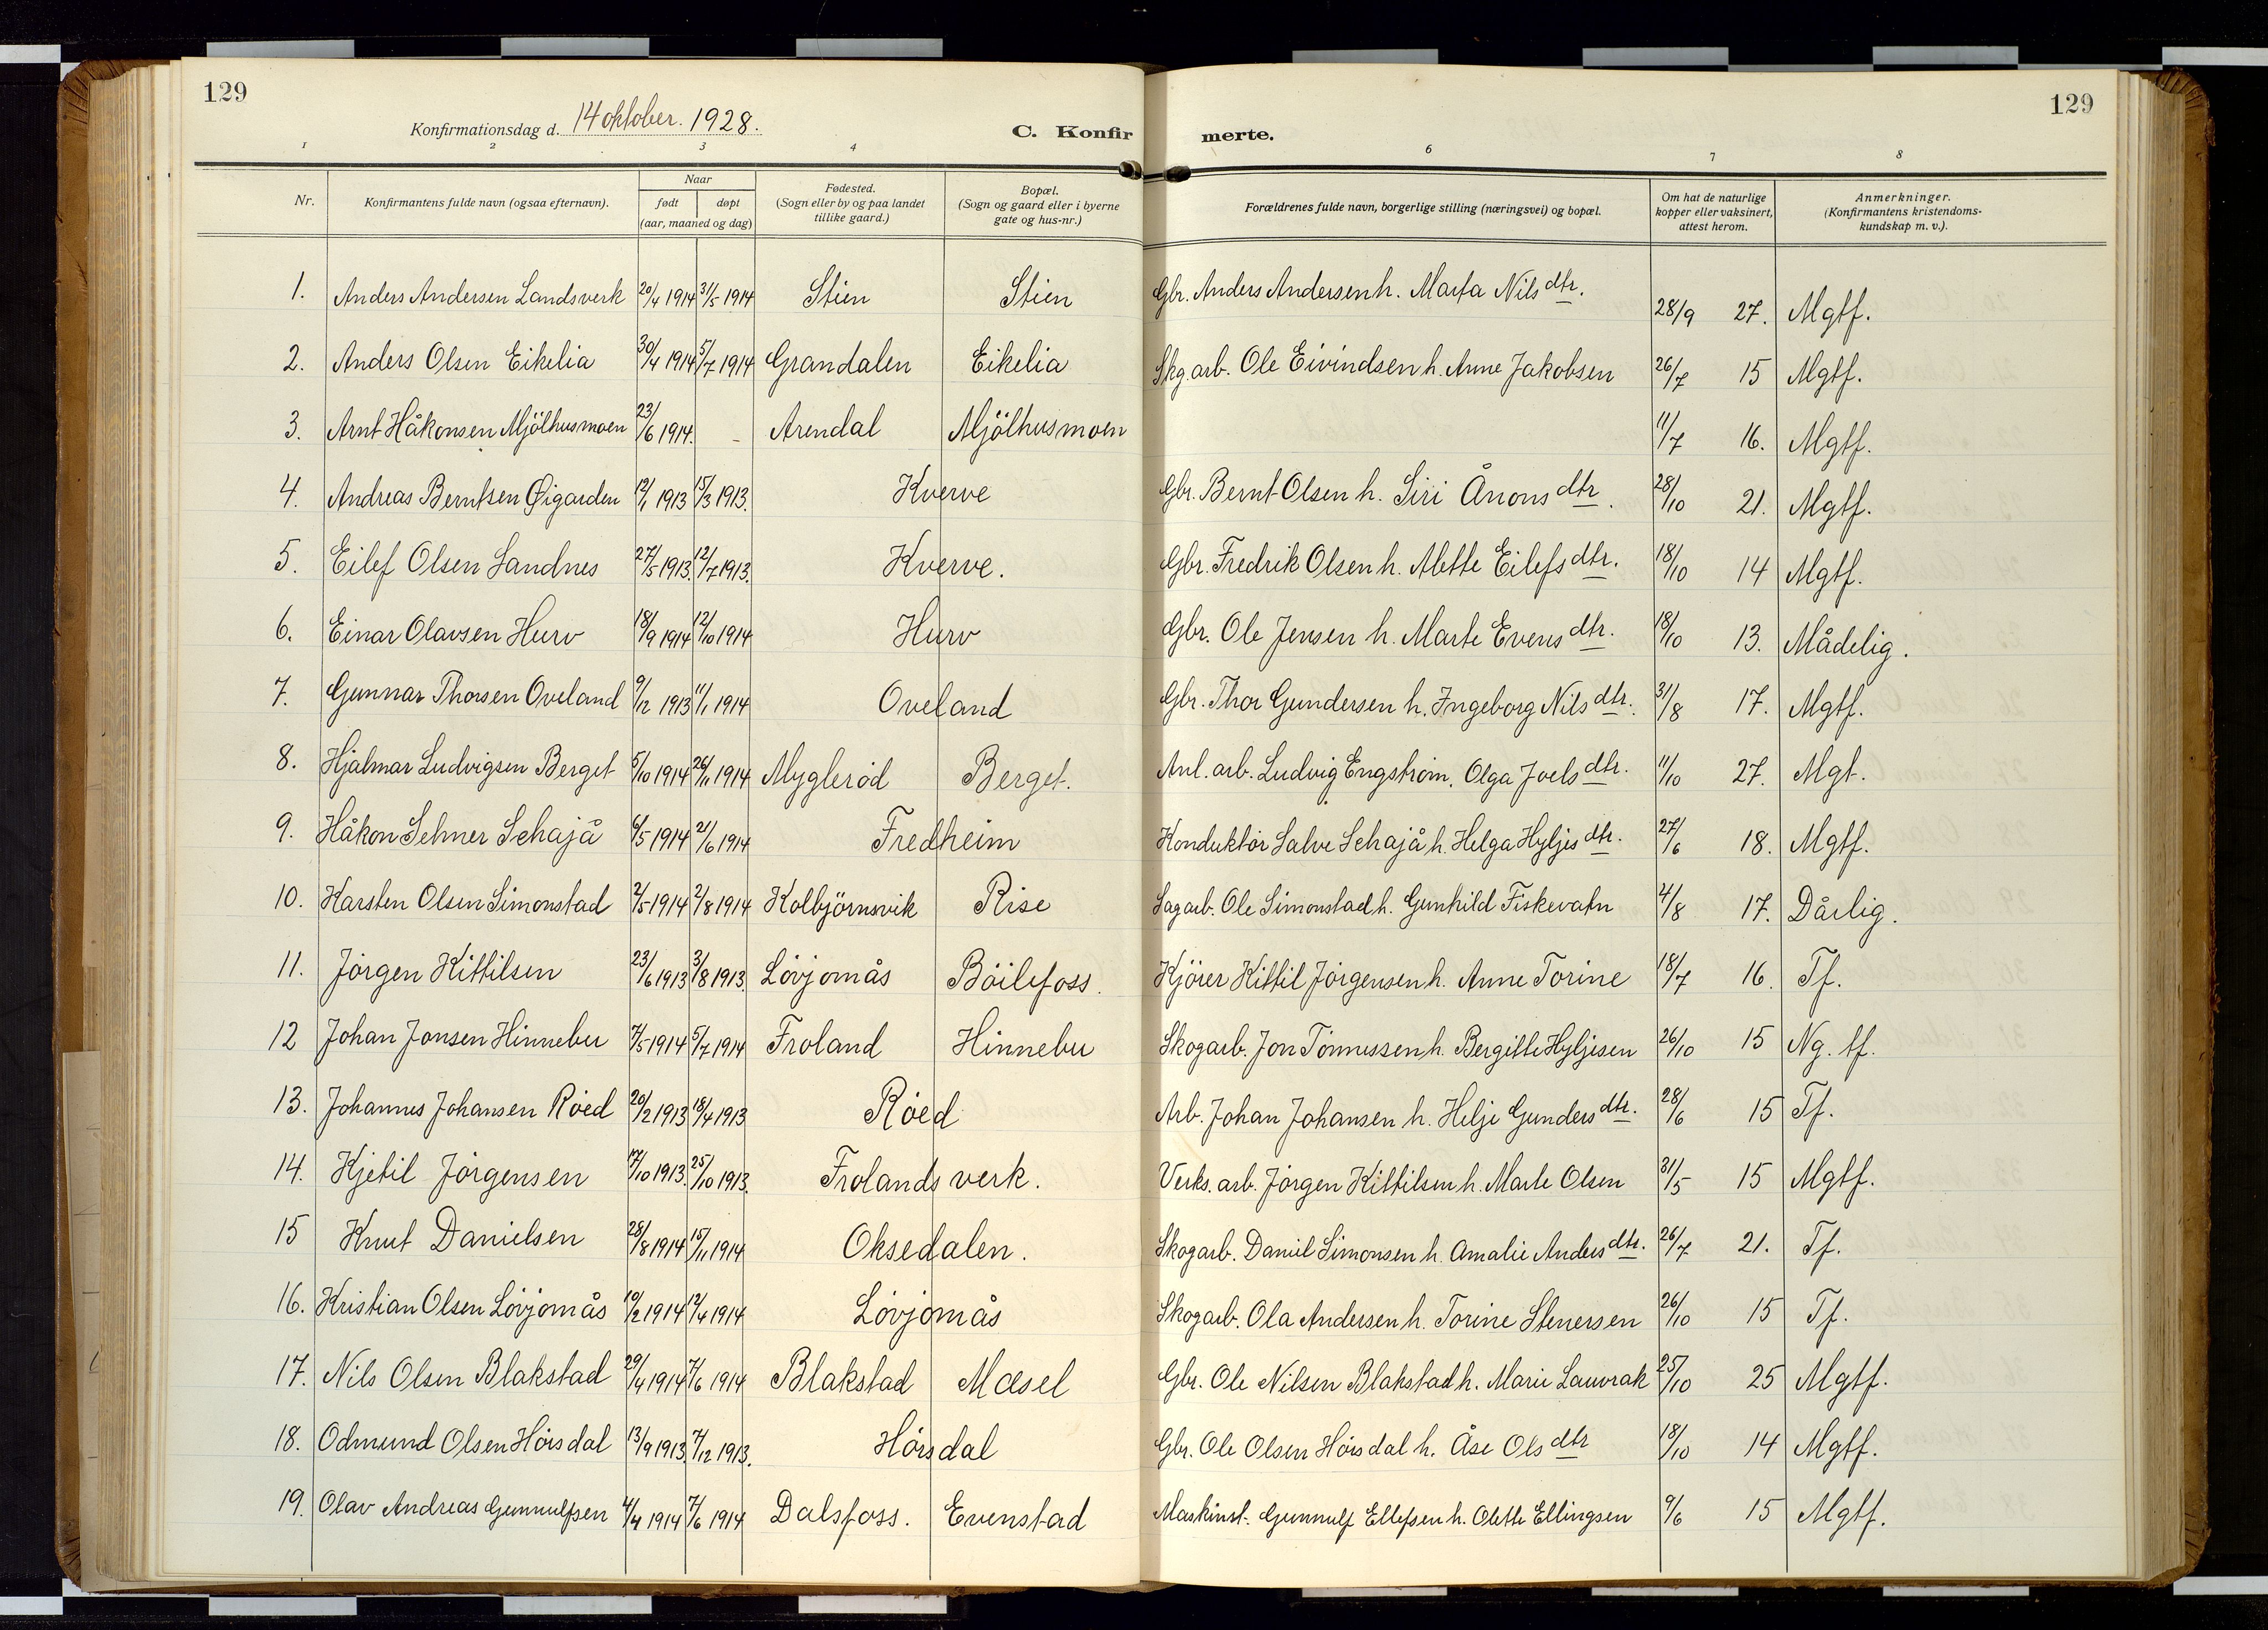 129
129
Konfirmationsdag d. 14 oktober. 1928.
C. Konfirmerte.
1 2 3 4 6 7 8
Nr.
Konfirmantens fulde navn (ogsaa efternavn).
Naar
født døpt
(aar, maaned og dag)
Fødested.
(Sogn eller by og paa landet
tillike gaard.)
Bopæl.
(Sogn og gaard eller i byerne
gate og hus-nr.)
Forældrenes fulde navn, borgerlige stilling (næringsvei) og bopæl.
Om hat de naturlige
kopper eller vaksinert,
attest herom.
Anmerkninger.
(Konfirmantens kristendoms-
kundskap m. v.).
1. Anders Andersen Landsverk 20/4 1914 31/5 1914 Stien Stien Gbr. Anders Andersen h. Marta Nilsdtr. 28/9 27. Mgtf.
2. Anders Olsen Eikelia 30/4 1914 5/7 1914 Grandalen Eikelia Skg. arb. Ole Eivindsen h. Anne Jakobsen 26/7 15 Mgtf.
3. Arnt Håkonsen Mjölhusmoen 23/6 1914. - Arendal Mjölhusmoen 11/7 16. Mgtf.
4. Andreas Berntsen Øigarden 12/1 1913 15/3 1913. Kverve Gbr. Bernt Olsen h. Siri Ånonsdtr. 28/10 21. Mgtf.
5. Eilef Olsen Sandnes 27/5 1913. 12/7 1913. Kverve. Gbr. Fredrik Olsen h. Alette Eilefsdtr. 18/10 14 Mgtf.
6. Einar Olavsen Hurv 18/9 1914 12/10 1914 Hurv Gbr. Ole Jensen h. Marte Evensdtr. 18/10 13. Mådelig.
7. Gunnar Thorsen Oveland 9/12 1913 11/1 1914 Oveland Gbr. Thor Gundersen h. Ingeborg Nilsdtr. 31/8 17. Mgtf.
8. Hjalmar Ludvigsen Berget 5/10 1914 26/11 1914 Myglerød Berget. Anl. arb. Ludvig Engstrøm, Olga Joelsdtr. 11/10 27. Mgt.
9. Håkon Selmer Schajå 6/5 1914 21/6 1914 Fredheim Konduktør Salve Schajå h. Helga Hyljesdtr. 27/6 18. Mgtf.
10. Karsten Olsen Simonstad 2/5 1914 2/8 1914 Kolbjörnsvik Rise Sagarb. Ole Simonstad h. Gunhild Fiskevatn 4/8 17. Dårlig.
11. Jörgen Kittilsen 23/6 1913 3/8 1913. Lövjomås Böilefoss. Kjörer Kittil Jörgensen h. Anne Torine 18/7 16. Tf.
12 Johan Jonsen Hinnebu 7/5 1914 5/7 1914 Froland Hinnebu Skogarb. Jon Tönnessen h. Bergitte Hyljesen 26/10 15 Ng. tf.
13. Johannes Johansen Röed 20/2 1913 18/4 1913 Röed Arb. Johan Johansen h. Helje Gundersdtr. 28/6 15 Tf.
14. Kjetil Jörgensen 17/10 1913. 25/10 1913. Frolands verk. Verks. arb. Jörgen Kittilsen h. Marte Olsen 31/5 15 Mgtf.
15 Knut Danielsen 28/8 1914 15/11 1914 Oksedalen. Skogarb. Daniel Simonsen h. Amalie Andersdtr. 26/7 21. Tf.
16. Kristian Olsen Lövjomås 19/2 1914 12/4 1914 Lövjomås Skogarb. Ola Andersen h. Torine Stenersen 26/10 15 Tf.
17. Nils Olsen Blakstad 29/4 1914 7/6 1914 Blakstad Mæsel Gbr. Ole Nilsen Blakstad h. Marie Lauvrak 25/10 25 Mgtf.
18. Odmund Olsen Hörsdal 13/9 1913 7/12 1913. Hörsdal Gbr. Ole Olsen Hörsdal h. Åse Olsdtr 18/10 14 Mgtf.
19. Olav Andreas Gunnulfsen 4/4 1914 7/6 1914 Dalsfoss. Evenstad Maskinst. Gunnulf Ellefsen h. Olette Ellingsen 9/6 15 Mgtf.